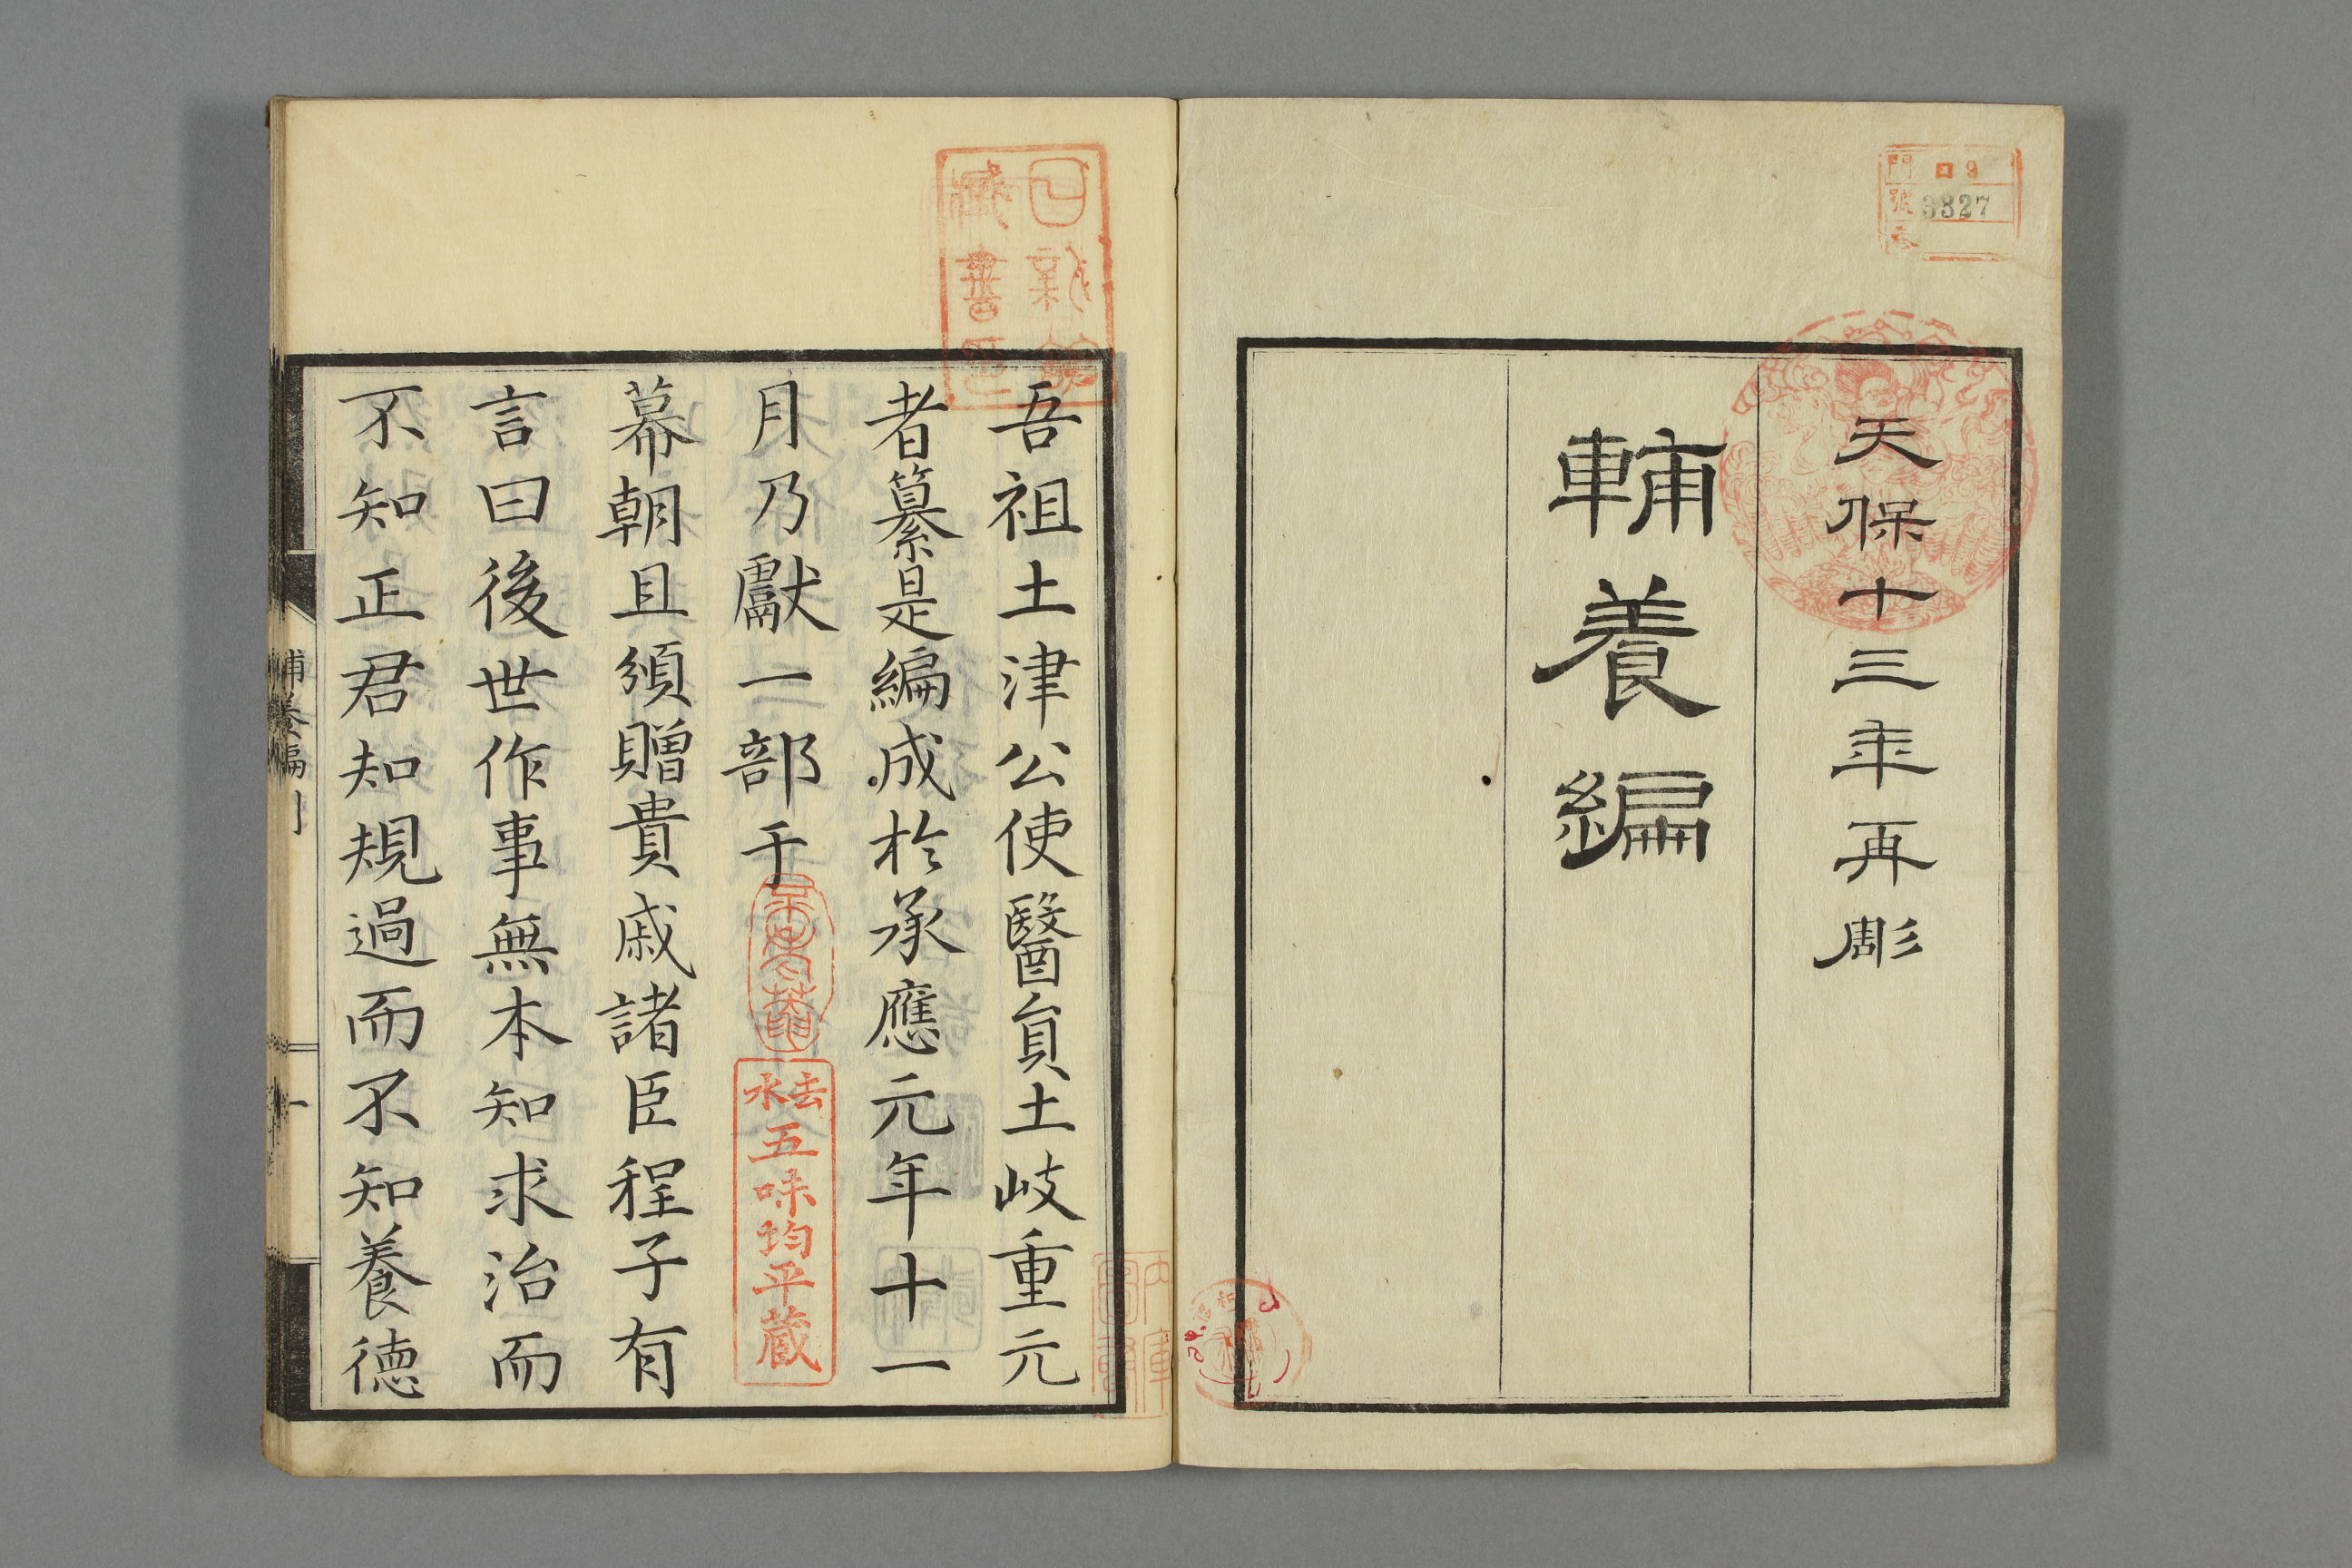 門 ロ9
號 3827
卷
天保十三年再彫
輔養編
吾祖土津公使醫員土岐重元
者纂是編成於承應元年十一
月乃獻一二部于
幕朝且須贈貴戚諸臣程子有
言曰後世作事無本知求治而
不知正君知規過而不知養德
日新館
藏書印
去水
五味均平蔵